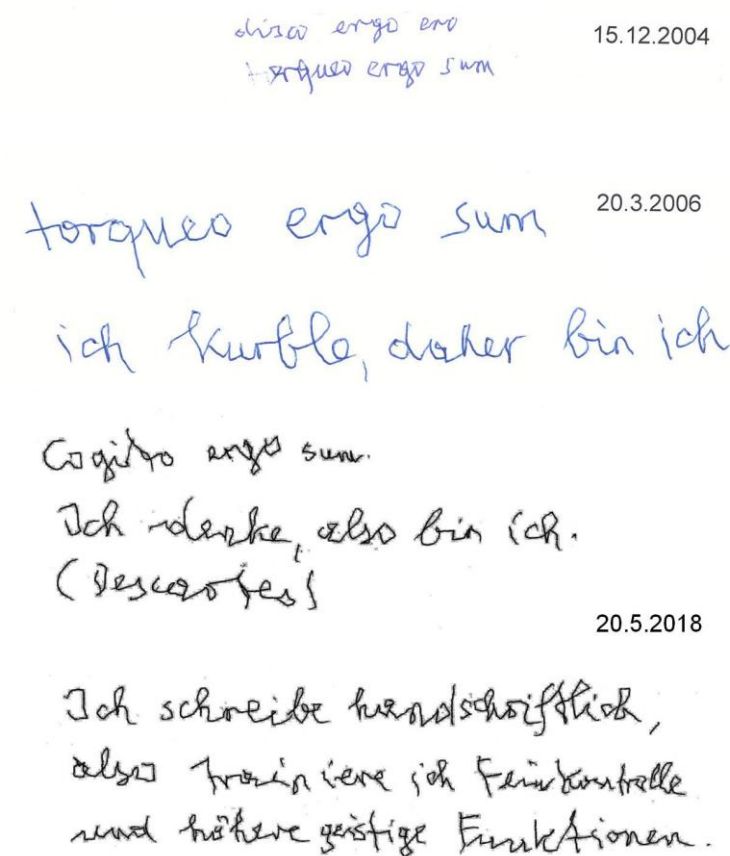 disco ergo ero
15.12.2004
torqueo ergo sum
torqueo ergo sum
20.3.2006
ich kurble, daher bin ich
Cogito ergo sum.
Ich denke, also bin ich.
(Descartes)
20.5.2018
Ich schreibe handschriftlich,
also trainiere ich Feinkontrolle
und höhere geistige Funktionen.